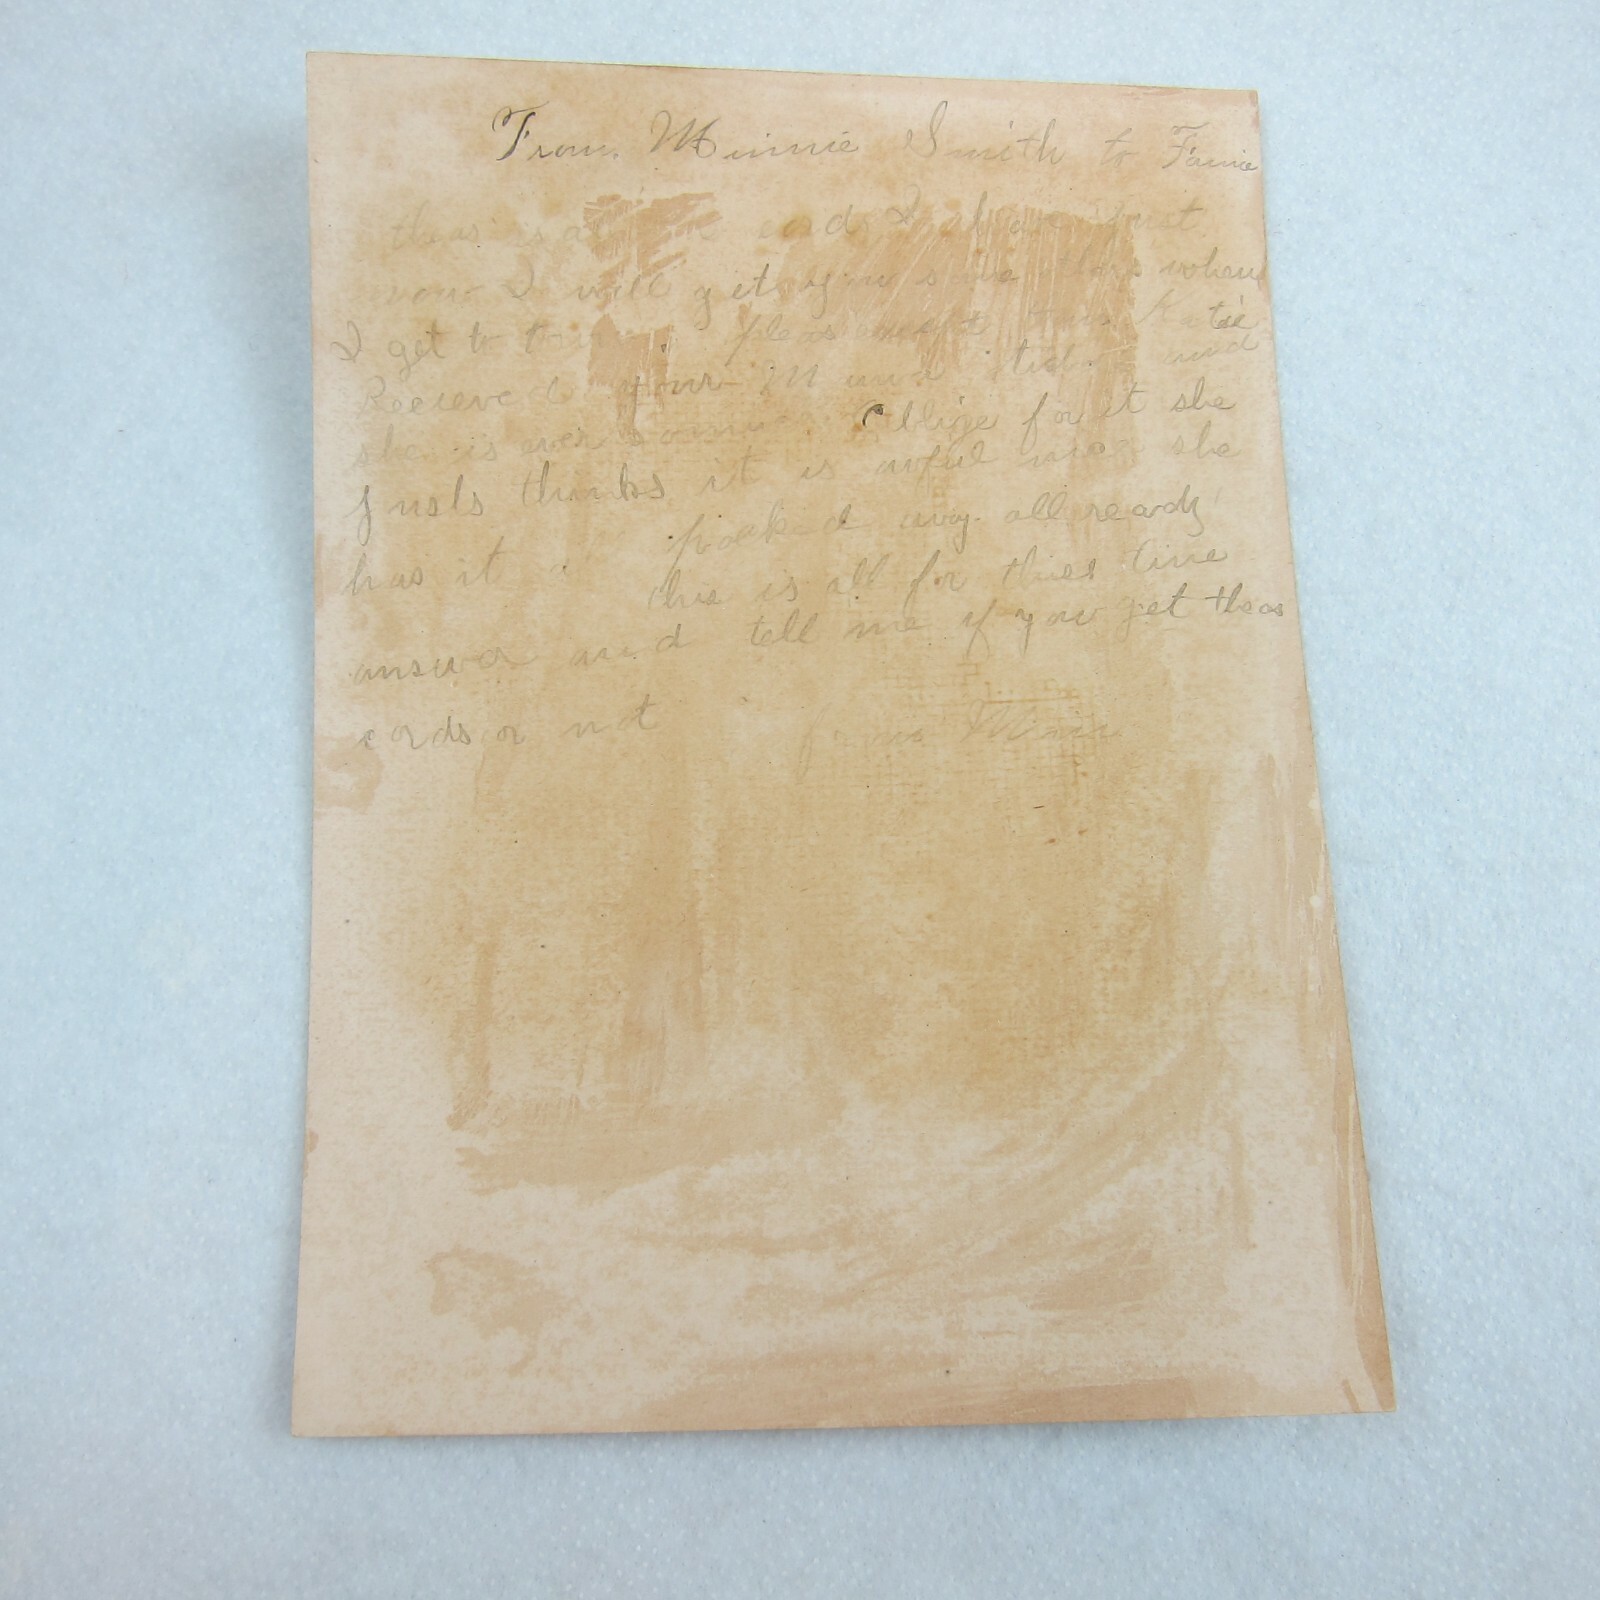 From Minnie Smith to Fannie
theas is all the cards I have just
now I will get you some when
I get to pleas Katie
Recieved your and
she is ever Oblige for it she
justs thinks it is awful nice she
has it packed away all ready
this is all for this time
answer and tell me if you get theas
cards or not from Minnie